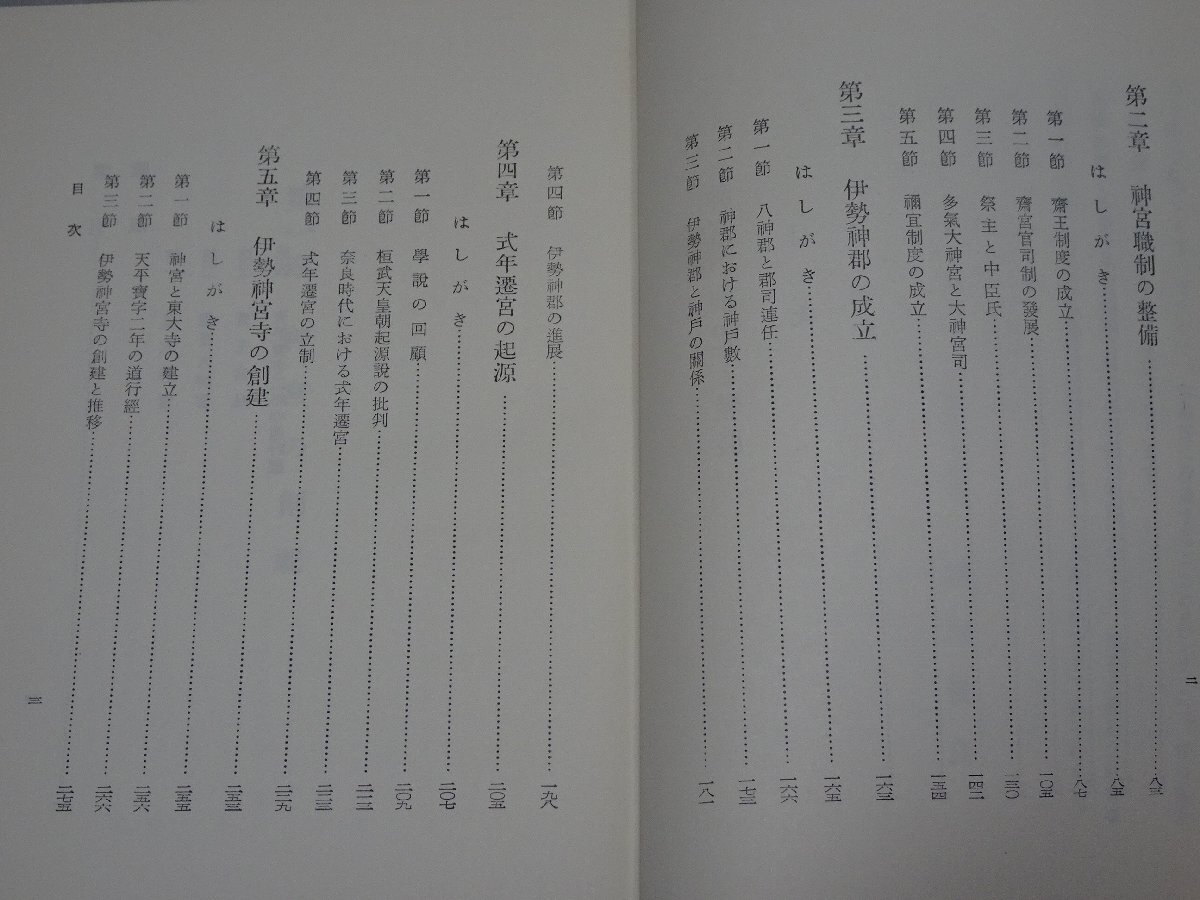 二
第二章 神宮職制の整備……八三
はしがき……八五
第一節 齋王制度の成立……八七
第二節 齋宮官司制の發展……一〇五
第三節 祭主と中臣氏……一三〇
第四節 多氣大神宮と大神宮司……一四二
第五節 禰宜制度の成立……一五四
第三章 伊勢神郡の成立……一六三
はしがき……一六五
第一節 八神郡と郡司連任……一六六
第二節 神郡における神戸數……一七三
第三節 伊勢神郡と神戸の關係……一八一
第四節 伊勢神郡の進展……一九八
第四章 式年遷宮の起源……二〇五
はしがき……二〇七
第一節 學說の回顧……二〇九
第二節 桓武天皇朝起源說の批判……二一二
第三節 奈良時代における式年遷宮……
第四節 式年遷宮の立制……
第五章 伊勢神宮寺の創建……二五三
はしがき……二五五
第一節 神宮と東大寺の建立……二五五
第二節 天平寶字二年の道行經……二五六
第三節 伊勢神宮寺の創建と推移……二七五
目次
三